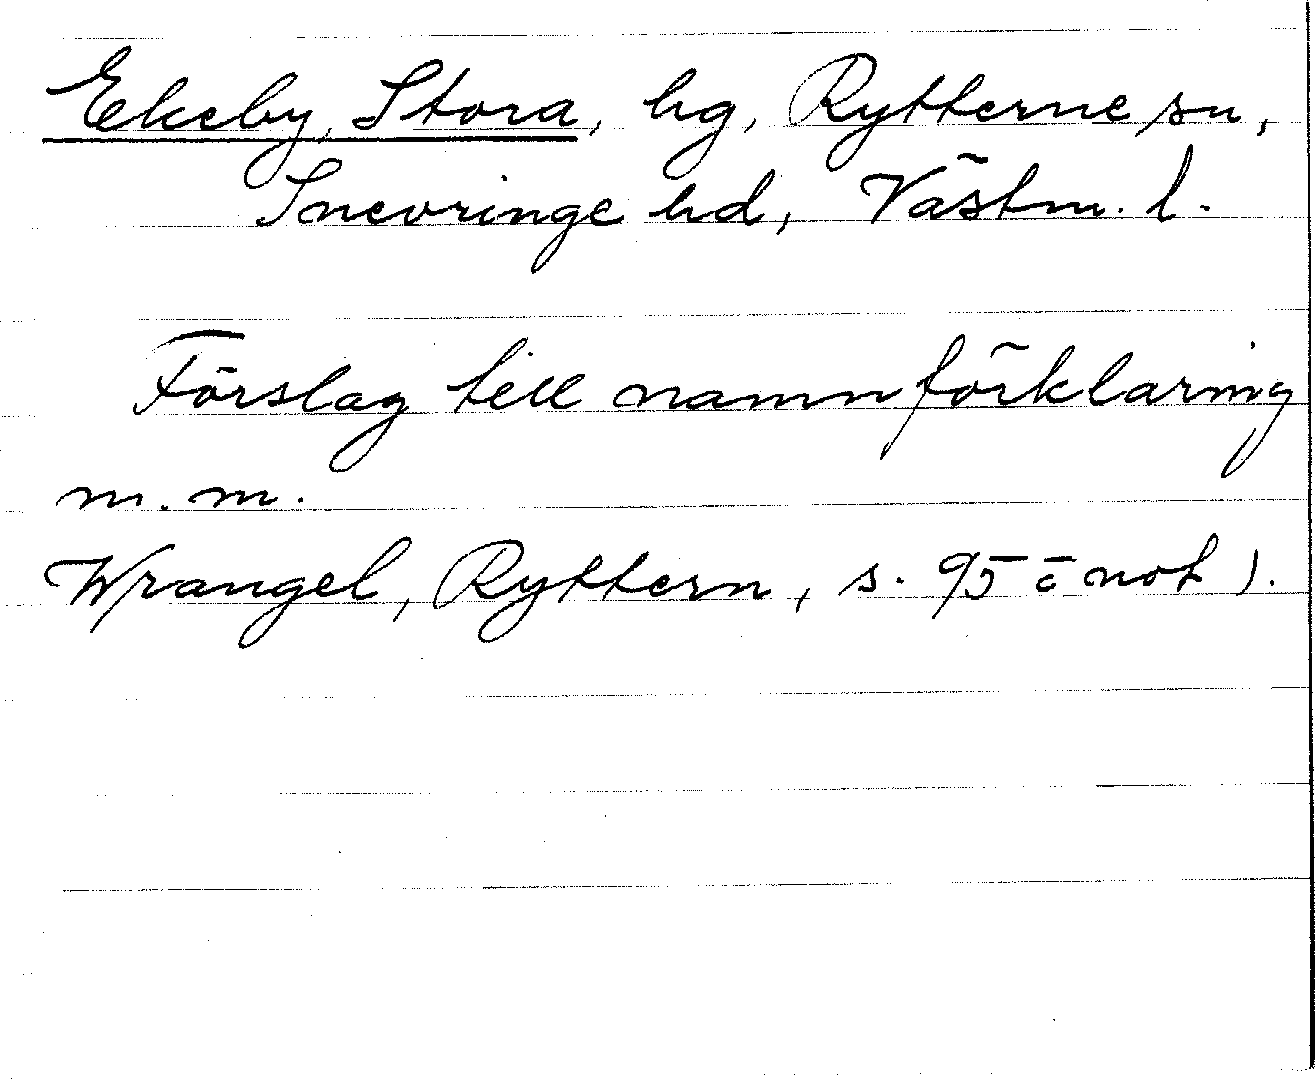 Ekeby, Stora, hg, Rytterne sn,
Snevringe hd, Västm. l.
Förslag till namnförklaring
m. m.
Wrangel, Ryttern, s. 95 o not ).